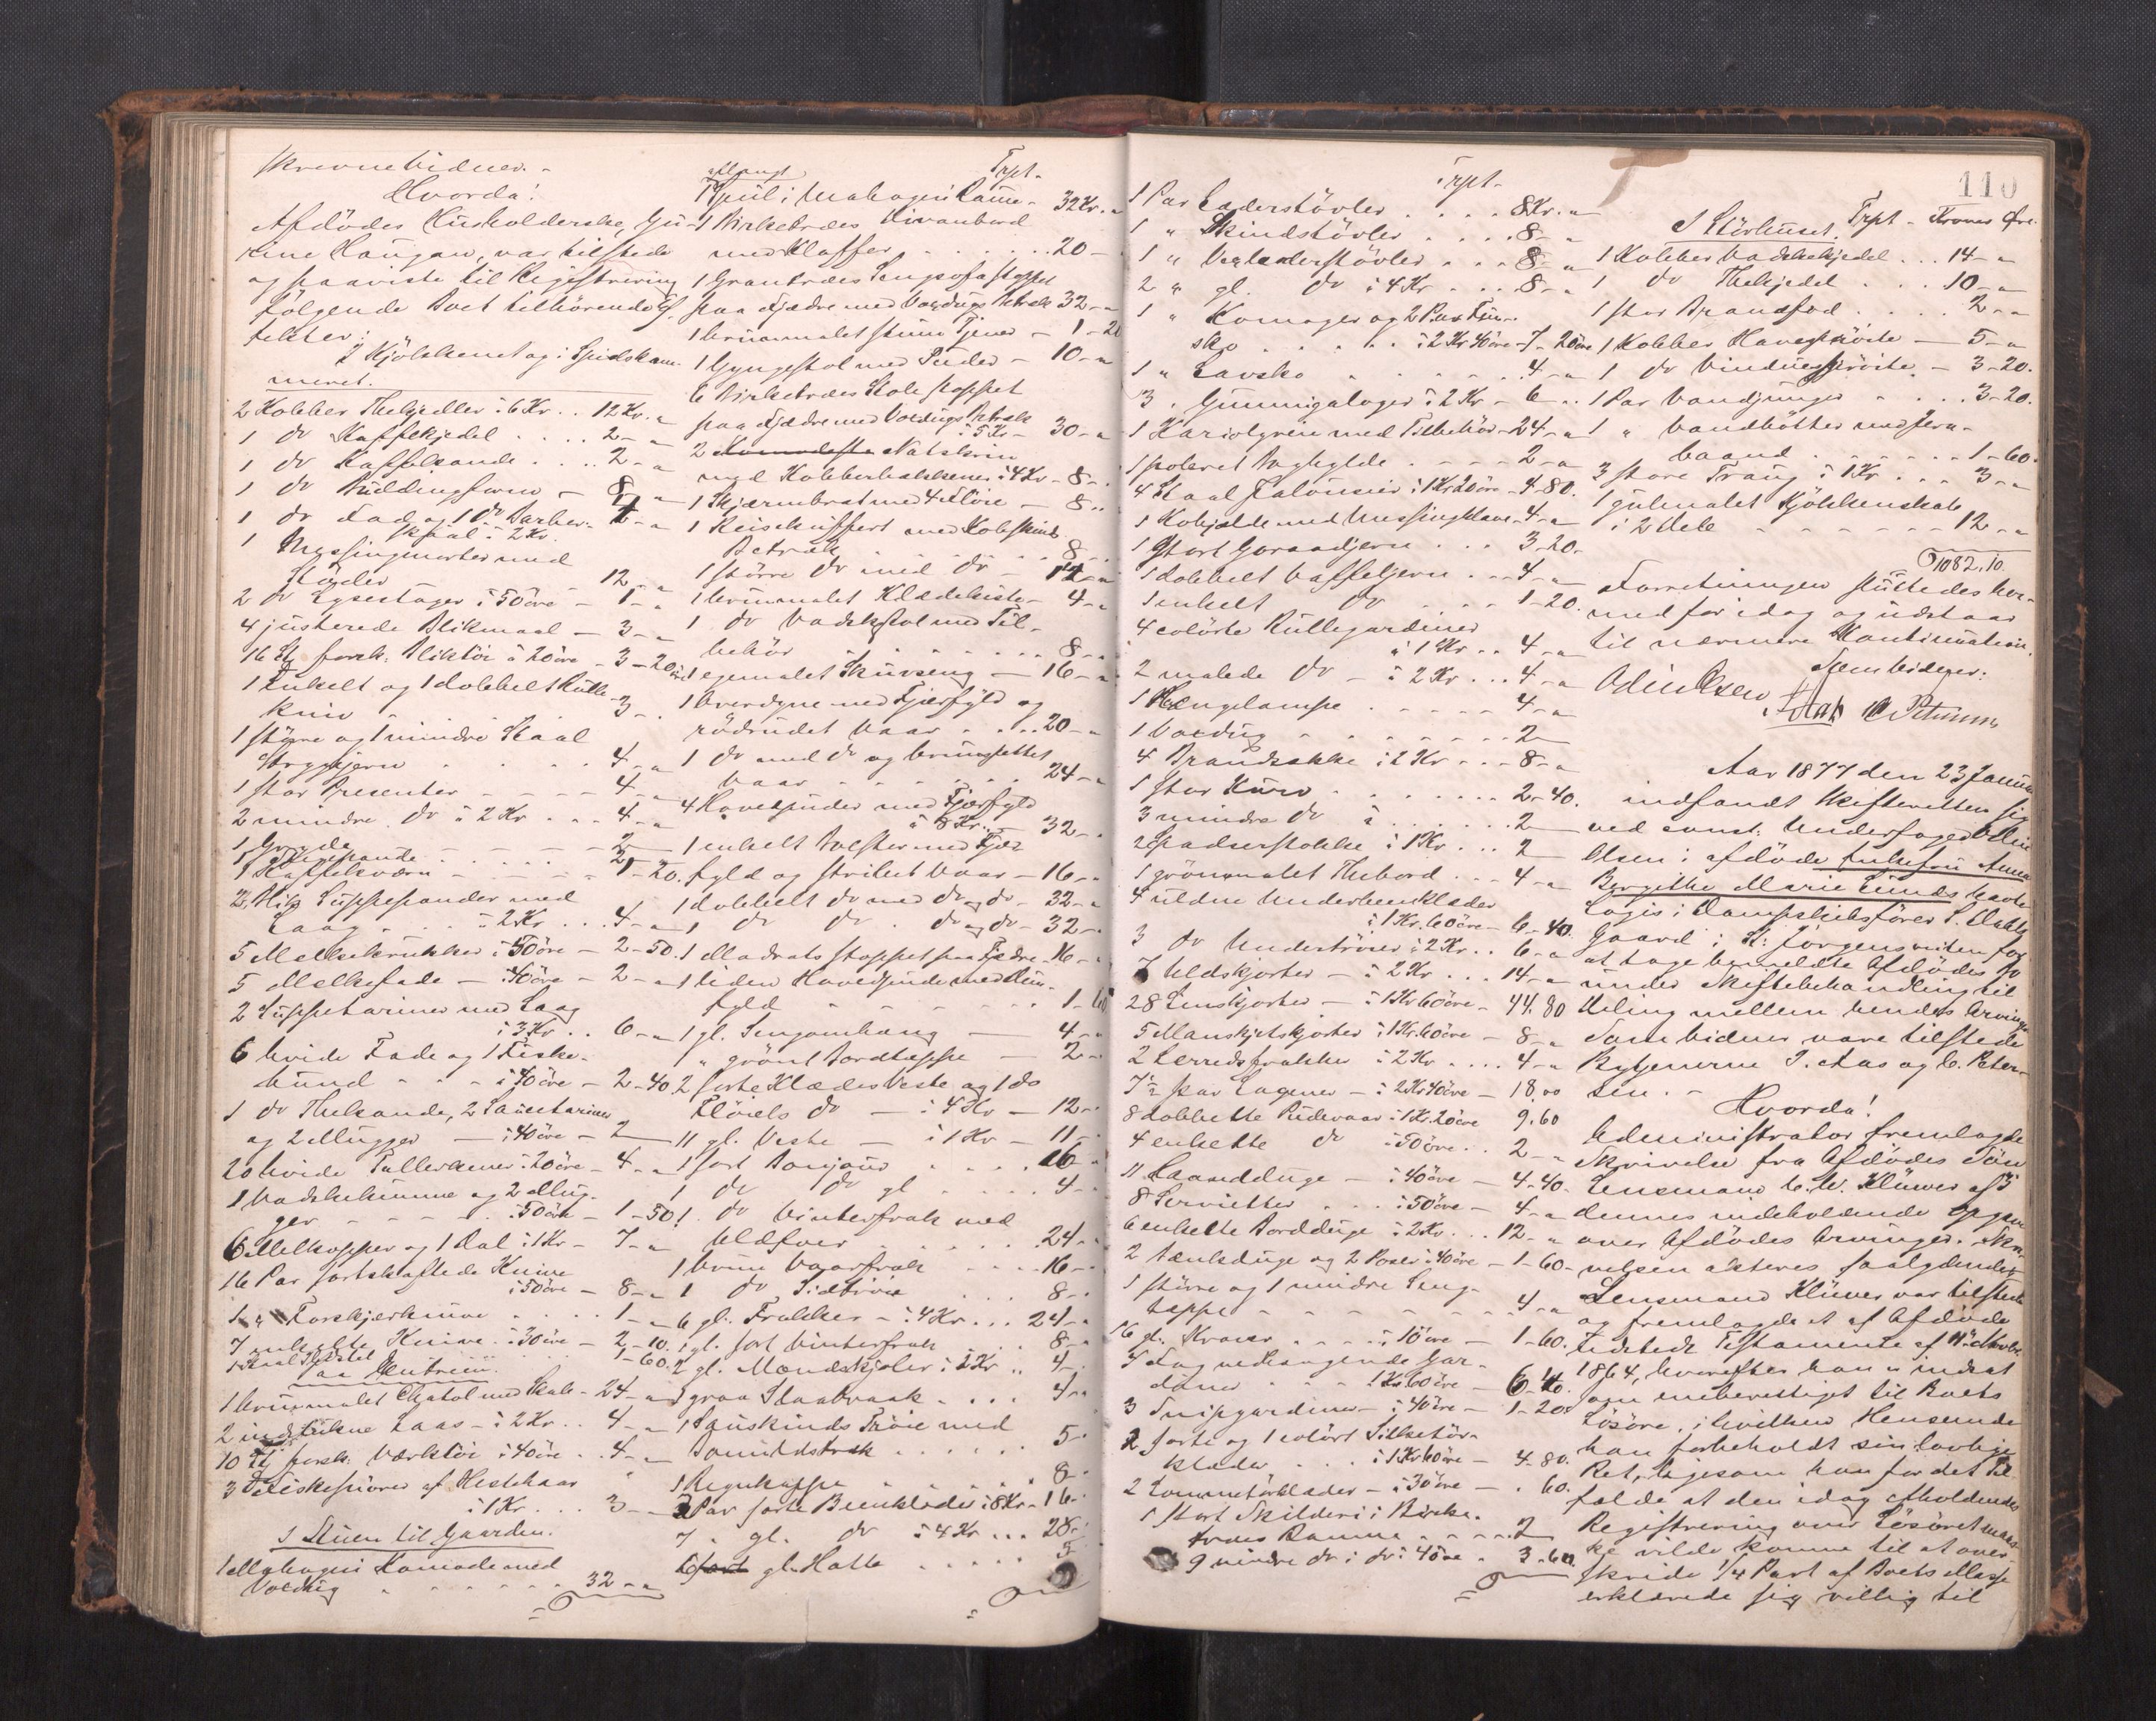 skrevne Vidner. -
Hvorda!
Afdödes Husholderske, Gu-
rine Haugan, var tilstede
og paaviste til Registrering
følgende Boet tilhörende Ef-
fekter:
I Kjökkenet og i Spidskam-
meret.
2 Kobber Thekjedler à 6 Kr. . . 12 Kr. "
1 do Kaffekjedel . . . . 2 - "
1 do Kaffekande . . . . 2 - "
1 do Buddingform - 8 - "
1 do Fad og 1 do Barber-
skaal à 2 Kr.
1 Messingmorter med
Stöder - 12 - "
2 do Lysestager à 50 öre - 1 - "
4 justerede Blikmaal - 3 - "
16 St. forsk. Bliktöi à 20 öre - 3 - 20
1 Enkelt og 1 dobbelt Rulle-
kniv - 3 - "
1 större og 1 mindre Staal
Strygejern . . . . 4 - "
1 stor Presenter - 4 - "
2 mindre do à 2 Kr . . . 4 - "
1 Gryde - 2
1 Stegepande - 2
1 Kaffekværn - 1 - 20.
2 Blik Suppespander med
Laag . . . à 2 Kr . . . 4 - "
5 Melkekrukker à 50 öre - 2 - 50.
5 Melkefade - à 40 öre - 2 - "
2 Suppeterriner med Laag
à 3 Kr . . 6 - "
6 hvide Fade og 1 Fiske-
bund - - - à 40 öre - 2 - 40.
1 do Thekande, 2 Saucetariner
og 2 Mugger - à 40 öre - 2
20 hvide Tallerkener à 20 öre - 4 - "
1 Vadskekumme og 2 Mug-
ger - - - à 50 öre - 1 - 50
6 Melkekopper og 1 Kal à 1 Kr - 7 - "
16 Par sortskaftede Knive
à 50 öre - 8 - "
1 " Forskjerknive . . . . 1 - "
7 enkelte Knive - à 30 öre - 2 - 10.
1 - 60.
aa Entreen.
1 brunmalet Chatol med Skab - 24 - "
2 indstukne Laas - à 2 Kr . . 4 - "
10 St. forsk. Værktöi à 40 öre . . 4 - "
3 Fiskesnörer af Hestehaar
à 1 Kr . . . 3 - "
I Stuen til Gaarden.
1 Mahogni Komode med
Voxdug - - - - - 32 - "
Trpt.
1 Speil i Mahogni Ramme - 32 Kr. "
1 Birketræes Divanbord
med Klaffer . . . . . . 20 -
1 Grantræes Sengsofa stoppet
paa Fjædre med Voxdugs Betræk 32 - "
1 brunmalet stum Tjener - 1 - 20
1 Gyngestol med Puder - 10 - "
6 Birketræes Stole stoppet
paa Fjædre med Voxdugs Betræk
à 5 Kr - 30 - "
2 Natskrin
med Kobberbækkener à 4 Kr - 8 - "
1 Skjærmbræt med 4 Flöie - 8 - "
1 Reisekuffert med Kobskinds
Betræk . . . 8 - "
1 större do med do - 14 - "
1 brunmalet Klædekiste - 4 - "
1 do Vadskestol med Til-
behör . . . . . . . . 8 - "
1 egemalet Skuvseng - 16 - "
1 Overdyne med Fjærfyld og
rödrudet Vaar . . . 20 - "
1 do med do og brunstribet
Vaar . . . . . . 24 - "
4 Hovedpuder med Fjærfyld
à 8 Kr. 32 - "
1 enkelt Bolster med Fjær-
fyld og stribet Vaar - 16 - "
1 dobbelt do med do og do - 32 - "
1 do do do og do - 32 - "
1 Madrats stoppet paa Fjædre - 16 - "
1 liden Hovedpude med Dun-
fyld - - - - 1 - 60
1 gl. Sengomhæng - 4 - "
" grönt Bordteppe - 2 - "
2 sorte Klædes Veste og 1 do
Flöiels do - à 4 Kr - 12 - "
11 gl. Veste - à 1 Kr - 11 - "
1 sort Bonjour . . . . 16 - "
1 do do gl . . . . 4 - "
1 do Vinterfrak med
Uldfoer . . . . . 24 - "
1 brun Vaarfrak . . . . 16 - "
1 do Sidtröie . . . 8 - "
6 gl. Frakker - à 4 Kr . . . 24 - "
1 gl. sort Vinterfrak . . . 8 - "
2 gl. Mandskjoler à 2 Kr . . 4 - "
1 graa Slaabraak . . . 4 - "
1 Sauskinds Tröie med
Bomuldstræk . . . . . . 5 - "
1 Regnkappe . . . . . 8 - "
2 Par sorte Beenklæder à 8 Kr - 16 - "
7 " gl. do à 4 Kr . . . 28 - "
6 gl. Hatte . . . . . 5
110
Trpt.
1 Par Læderstövler . . . . 8 Kr. "
1 " Skindstövler . . . 8 - "
1 " Voxlæderstövler . . . 8 - "
2 " gl. do à 4 Kr . . . 8 - "
1 " Komager og 2 Par Fin-
sko . . . . . à 2 Kr 40 öre - 7 - 20 öre
1 " Lavsko . . . . . 4 - "
3 " Gummigaloger à 2 Kr - 6 . .
1 Kariolgreie med Tilbehör - 24 - "
1 poleret Boghylde . . . . 2 - "
4 Staal Jalousier à 1 Kr 20 öre - 4 - 80.
1 Kobjælde med Messingklave - 4 - "
1 Stort Goraadjern . . . 3 - 20.
1 dobbelt Vaffeljern . . . 4 - "
1 enkelt do . . . . 1 - 20.
4 colörte Rullegardiner
à 1 Kr . . 4 - "
2 malede do - à 2 Kr . . . 4 - "
1 Hængelampe - - - - 4 - "
1 Voxdug - - - - 2
4 Brandsække à 2 Kr - - 8 - "
1 stor Kurv . . . . . 2 - 40.
3 mindre do à . . . . . 2
2 Spadserstokke à 1 Kr . . . 2
1 grönmalet Thebord . . . 4 - "
4 uldne Underbenklæder
à 1 Kr. 60 öre - 6 - 40.
3 do Undertröier à 2 Kr. . . 6 - "
7 Uldskjorter - à 2 Kr . . . 14 - "
28 Linskjorter - à 1 Kr 60 öre - 44. 80
5 Manskjetskjorter à 1 Kr. 60 öre - 8 - "
2 Lerredsfrakker à 2 Kr . . . . 4 - "
7½ Par Lagener - à 2 Kr 40 öre - 18. 00
8 dobbelte Pudevaar à 1 Kr. 20 öre 9. 60
4 enkelte do à 50 öre . . 2 - "
11 Haandduge - à 40 öre - 4 - 40.
8 Servietter . . . à 50 öre - 4 - "
6 enkelte Bordduge à 2 Kr. . . 12 - "
2 Bænkduge og 2 Poser à 40 öre - 1 - 60 -
1 större og 1 mindre Seng-
teppe - - - - - 4 - "
16 gl. Kraver . . . . à 10 öre - 1 - 60.
4 Fag nedhængende Gar-
diner . . . 1 Kr. 60 öre - 6 - 40.
3 Snipgardiner - à 40 öre - 1 - 20.
2 sorte og 1 colört Silketör-
klæder . . . à 1 Kr 60 öre - 4 - 80.
2 Lommetörklæder - à 30 öre - . 60.
1 Stort Skilderi i Birke-
træes Ramme . . . . . 2
9 mindre do i do à 40 öre . 3 - 60
I Störhuset. Trpt - Kroner Öre.
1 Kobber Vadskekjedel . . . 14 - "
1 do Thekjedel . . . 10 - "
1 stor Brandfod . . . . 2 - "
1 Kobber Havespröite - 5 - "
1 do Vinduesspröite - 3 - 20.
1 Par Vandjunger - . . . 3 - 20.
1 " Vandbötter med Jern-
baand . . . . . . 1 - 60.
3 store Traug à 1 Kr . . . 3 - "
1 gulmalet Kjökkenskab
i 2 Dele - - - - 12 - "
1082. 10
Forretningen sluttedes her-
med for idag og udstaar
til nærmere Kontinuation.
Fembidrager:
Odin Olsen J. Aas C Petersen
Aar 1877 den 23 Januar
indfandt Skifteretten sig
ved const. Underfoged Odin
Olsen i afdöde Enkefru Anna
Bergithe Marie Lunds havte
Logis i Dampskibsförer S. Dahls
Gaard i St. Jörgensveiten for
at tage bemeldte Afdödes Bo
under Skiftebehandling til
Deling mellem hendes Arvinger.
Som Vidner vare tilstede
Bytjenerne J. Aas og C. Peter-
sen. -
Hvorda!
Administrator fremlagde
Skrivelse fra Afdödes Sön
Lensmand C. W. Klüwer af
dennes indeholdende Opgave
over Afdödes Arvinger. Skri-
velsen akteres saalydende:
Lensmand Klüwer var tilstede
og fremlagde et af Afdöde
udstedt Testamente af 11 Octbr.
1864, hvorefter han er indsat
som eneberettiget til Boets
Lösöre, i hvilken Henseende
han forbeholdt sin lovlige
Ret, ligesom han for det Til-
fælde at den idag afholdendes
Registrering over Lösöret maa-
ske vilde komme til at over-
skride 1/4 Part af Boets Masse
erklærede sig villig til